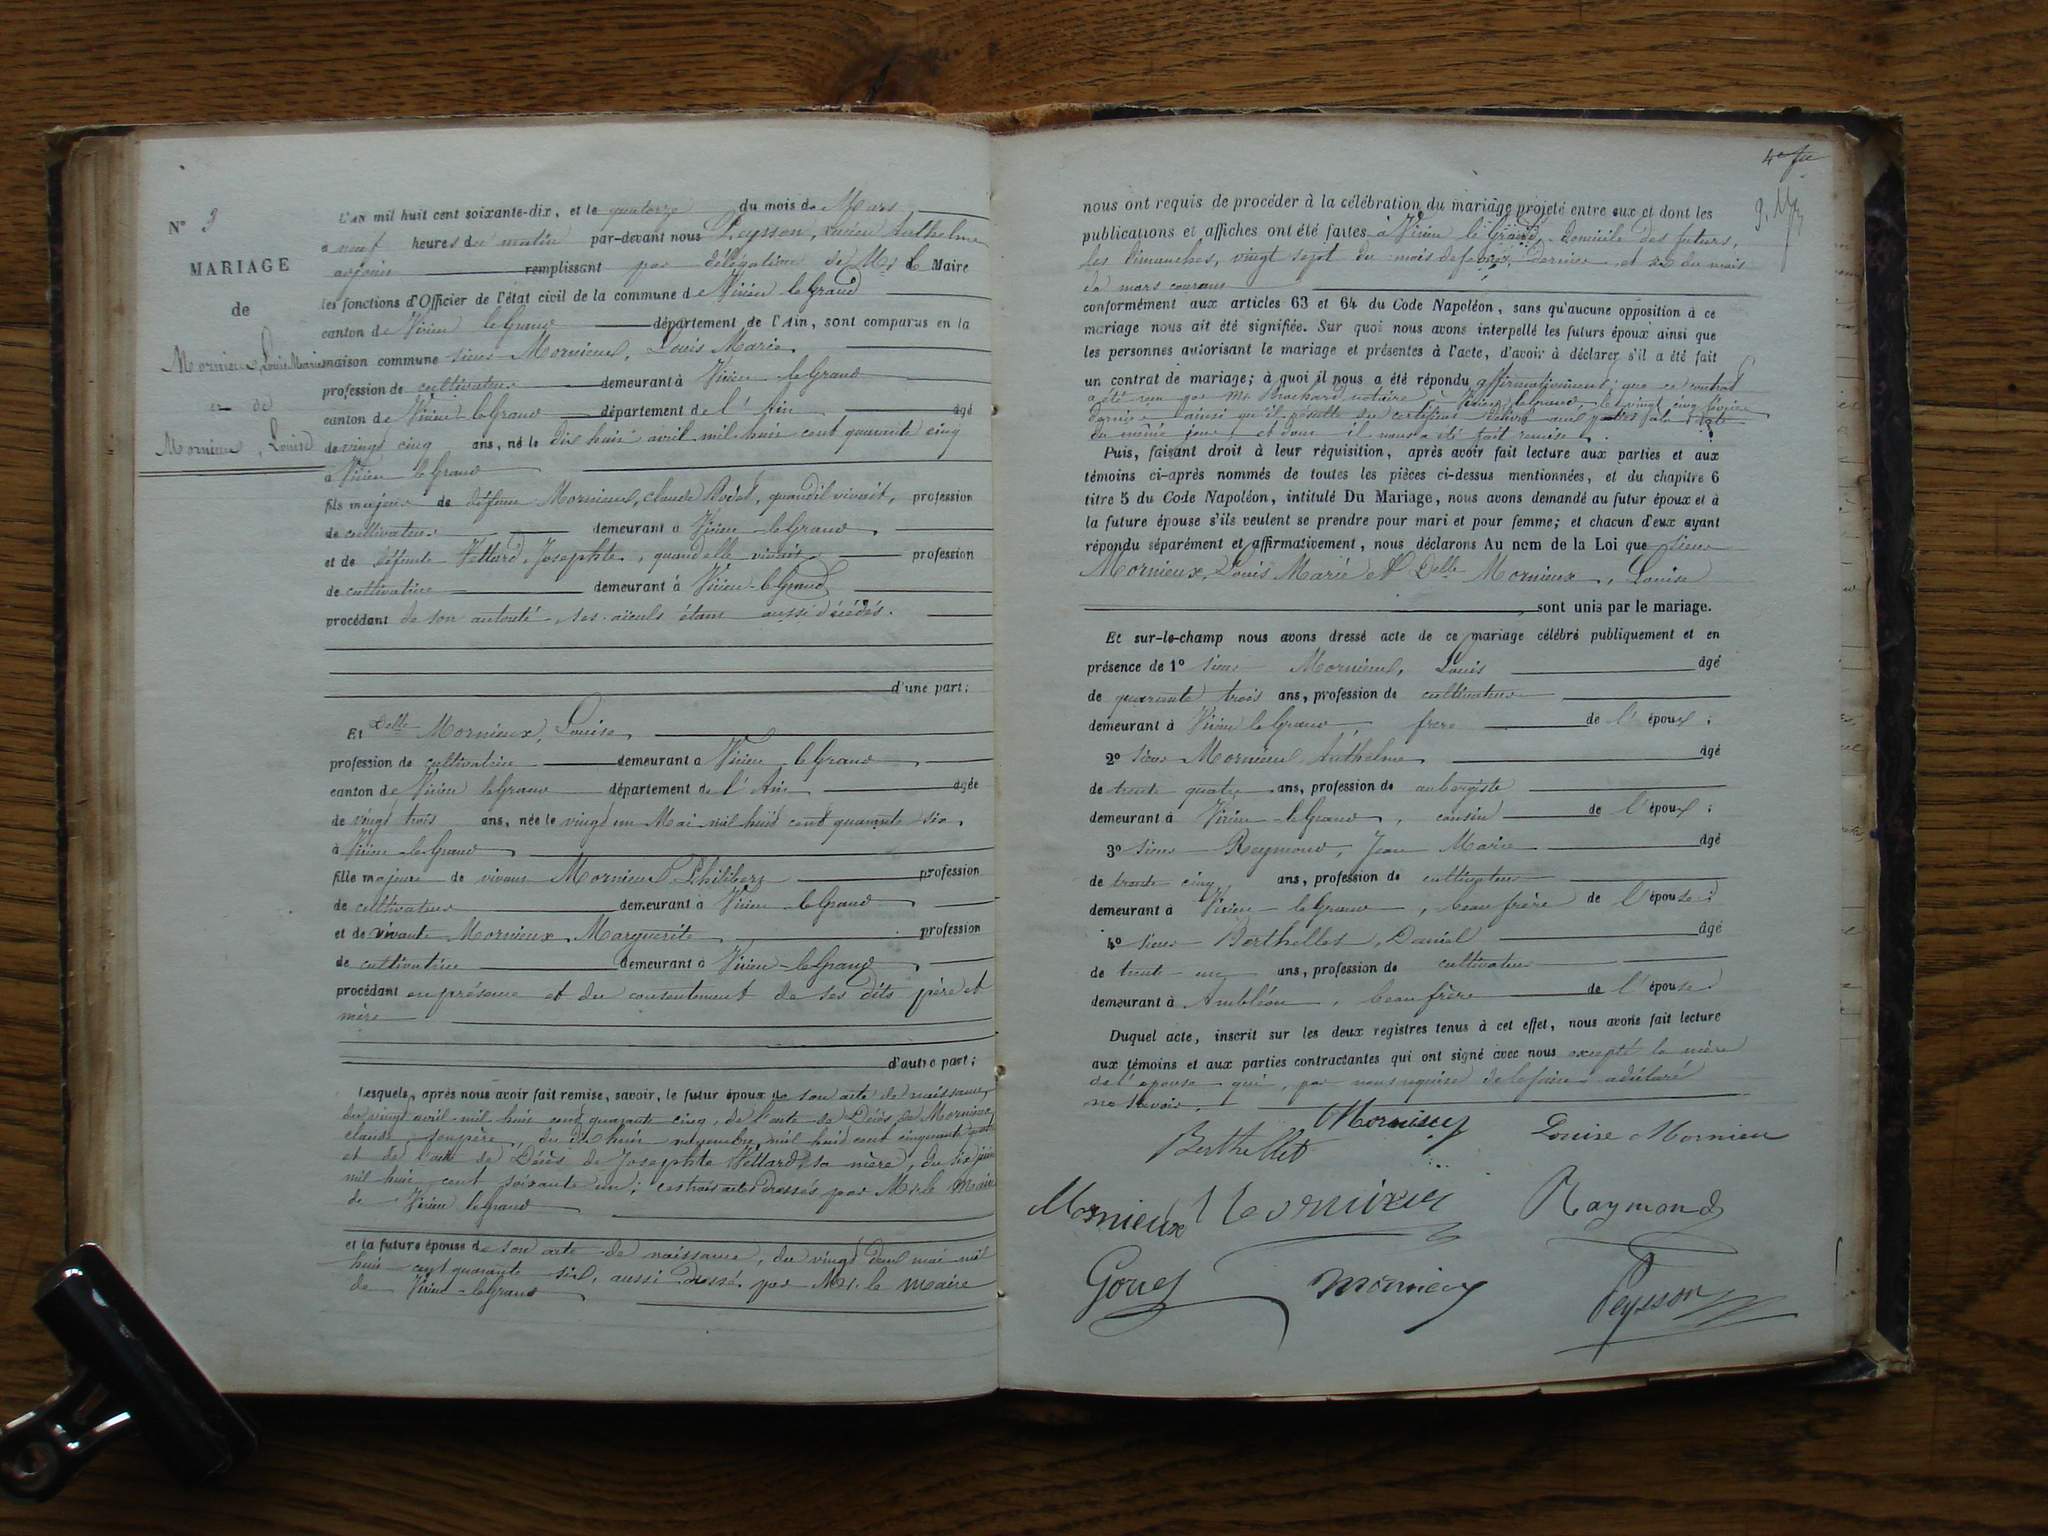 N° 3
MARIAGE
de
Mornieux, Louis Marie
et de
Mornieux, Louise
L'an mil huit cent soixante-dix, et le quatorze du mois de Mars
à neuf heures du matin par-devant nous Peysson, Anthelme
adjoint remplissant par délégation de Mr le Maire
les fonctions d'Officier de l'état civil de la commune de Virieu le Grand
canton de Virieu le Grand département de l'Ain, sont comparus en la
maison commune sieur Mornieux, Louis Marie
profession de cultivateur demeurant à Virieu le Grand
canton de Virieu le Grand département de l'Ain âgé
de vingt cinq ans, né le dix huit avril mil huit cent quarante cinq
à Virieu le Grand
fils majeur de défunt Mornieux, Claude quand il vivait, profession
de cultivateur demeurant à Virieu le Grand
et de défunte Vettard, Josephte, quand elle vivait profession
de cultivatrice demeurant à Virieu-le-Grand
procédant de son autorité, ses aïeuls étant aussi décédés.
d'une part;
Et Delle Mornieux, Louise,
profession de cultivatrice demeurant à Virieu le Grand
canton de Virieu le Grand département de l'Ain âgée
de vingt trois ans, née le vingt un Mai mil huit cent quarante six
à Virieu le Grand
fille majeure de vivant Mornieux Philibert profession
de cultivateur demeurant à Virieu le Grand
et de vivante Mornieux Marguerite profession
de cultivatrice demeurant à Virieu-le-Grand
procédant en présence et du consentement de ses dits père et
mère
d'autre part;
Lesquels, après nous avoir fait remise, savoir, le futur époux de son acte de naissance,
du vingt avril mil huit cent quarante cinq, de l'acte de Décès de Mornieux
Claude, son père, du dix huit novembre mil huit cent cinquante
et de l'acte de Décès de Josephte Vettard sa mère, du six juin
mil huit cent soixante un; ces trois actes dressés par Mr le Maire
de Virieu le Grand
et la future épouse de son acte de naissance, du vingt deux mai mil
huit cent quarante six, aussi dressé par Mr. le maire
de Virieu-le-Grand
4e fe
nous ont requis de procéder à la célébration du mariage projeté entre eux et dont les
publications et affiches ont été faites à Virieu le Grand, domicile des futurs,
les dimanches, vingt sept du mois de février dernier et six du mois
de mars courant
conformément aux articles 63 et 64 du Code Napoléon, sans qu'aucune opposition à ce
mariage nous ait été signifiée. Sur quoi nous avons interpellé les futurs époux ainsi que
les personnes autorisant le mariage et présentes à l'acte, d'avoir à déclarer s'il a été fait
un contrat de mariage; à quoi il nous a été répondu affirmativement; que ce contrat
a été reçu par Me Brochard, notaire à Virieu le Grand, le vingt cinq février
dernier ainsi qu'il résulte du certificat délivré aux parties à la date
du même jour, et dont il nous a été fait remise.
Puis, faisant droit à leur réquisition, après avoir fait lecture aux parties et aux
témoins ci-après nommés de toutes les pièces ci-dessus mentionnées, et du chapitre 6
titre 5 du Code Napoléon, intitulé Du Mariage, nous avons demandé au futur époux et à
la future épouse s'ils veulent se prendre pour mari et pour femme; et chacun d'eux ayant
répondu séparément et affirmativement, nous déclarons Au nom de la Loi que sieur
Mornieux, Louis Marie et Delle Mornieux, Louise
sont unis par le mariage.
Et sur-le-champ nous avons dressé acte de ce mariage célébré publiquement et en
présence de 1° sieur Mornieux, Louis âgé
de quarante trois ans, profession de cultivateur
demeurant à Virieu le Grand, frère de l'époux;
2° sieur Mornieux Anthelme âgé
de trente quatre ans, profession de aubergiste
demeurant à Virieu-le-Grand, cousin de l'époux;
3° sieur Reymond, Jean Marie âgé
de trente cinq ans, profession de cultivateur
demeurant à Virieu-le-Grand, beau frère de l'épouse;
4° sieur Berthellet, Daniel âgé
de trente un ans, profession de cultivateur
demeurant à Ambléon, beau frère de l'épouse.
Duquel acte, inscrit sur les deux registres tenus à cet effet, nous avons fait lecture
aux témoins et aux parties contractantes qui ont signé avec nous excepté la mère
de l'épouse qui, par nous requise de le faire a déclaré
ne savoir.
Mornieux
Berthellet Louise Mornieu
Mornieux Mornieux Raymond
Gouey Mornieux Peysson